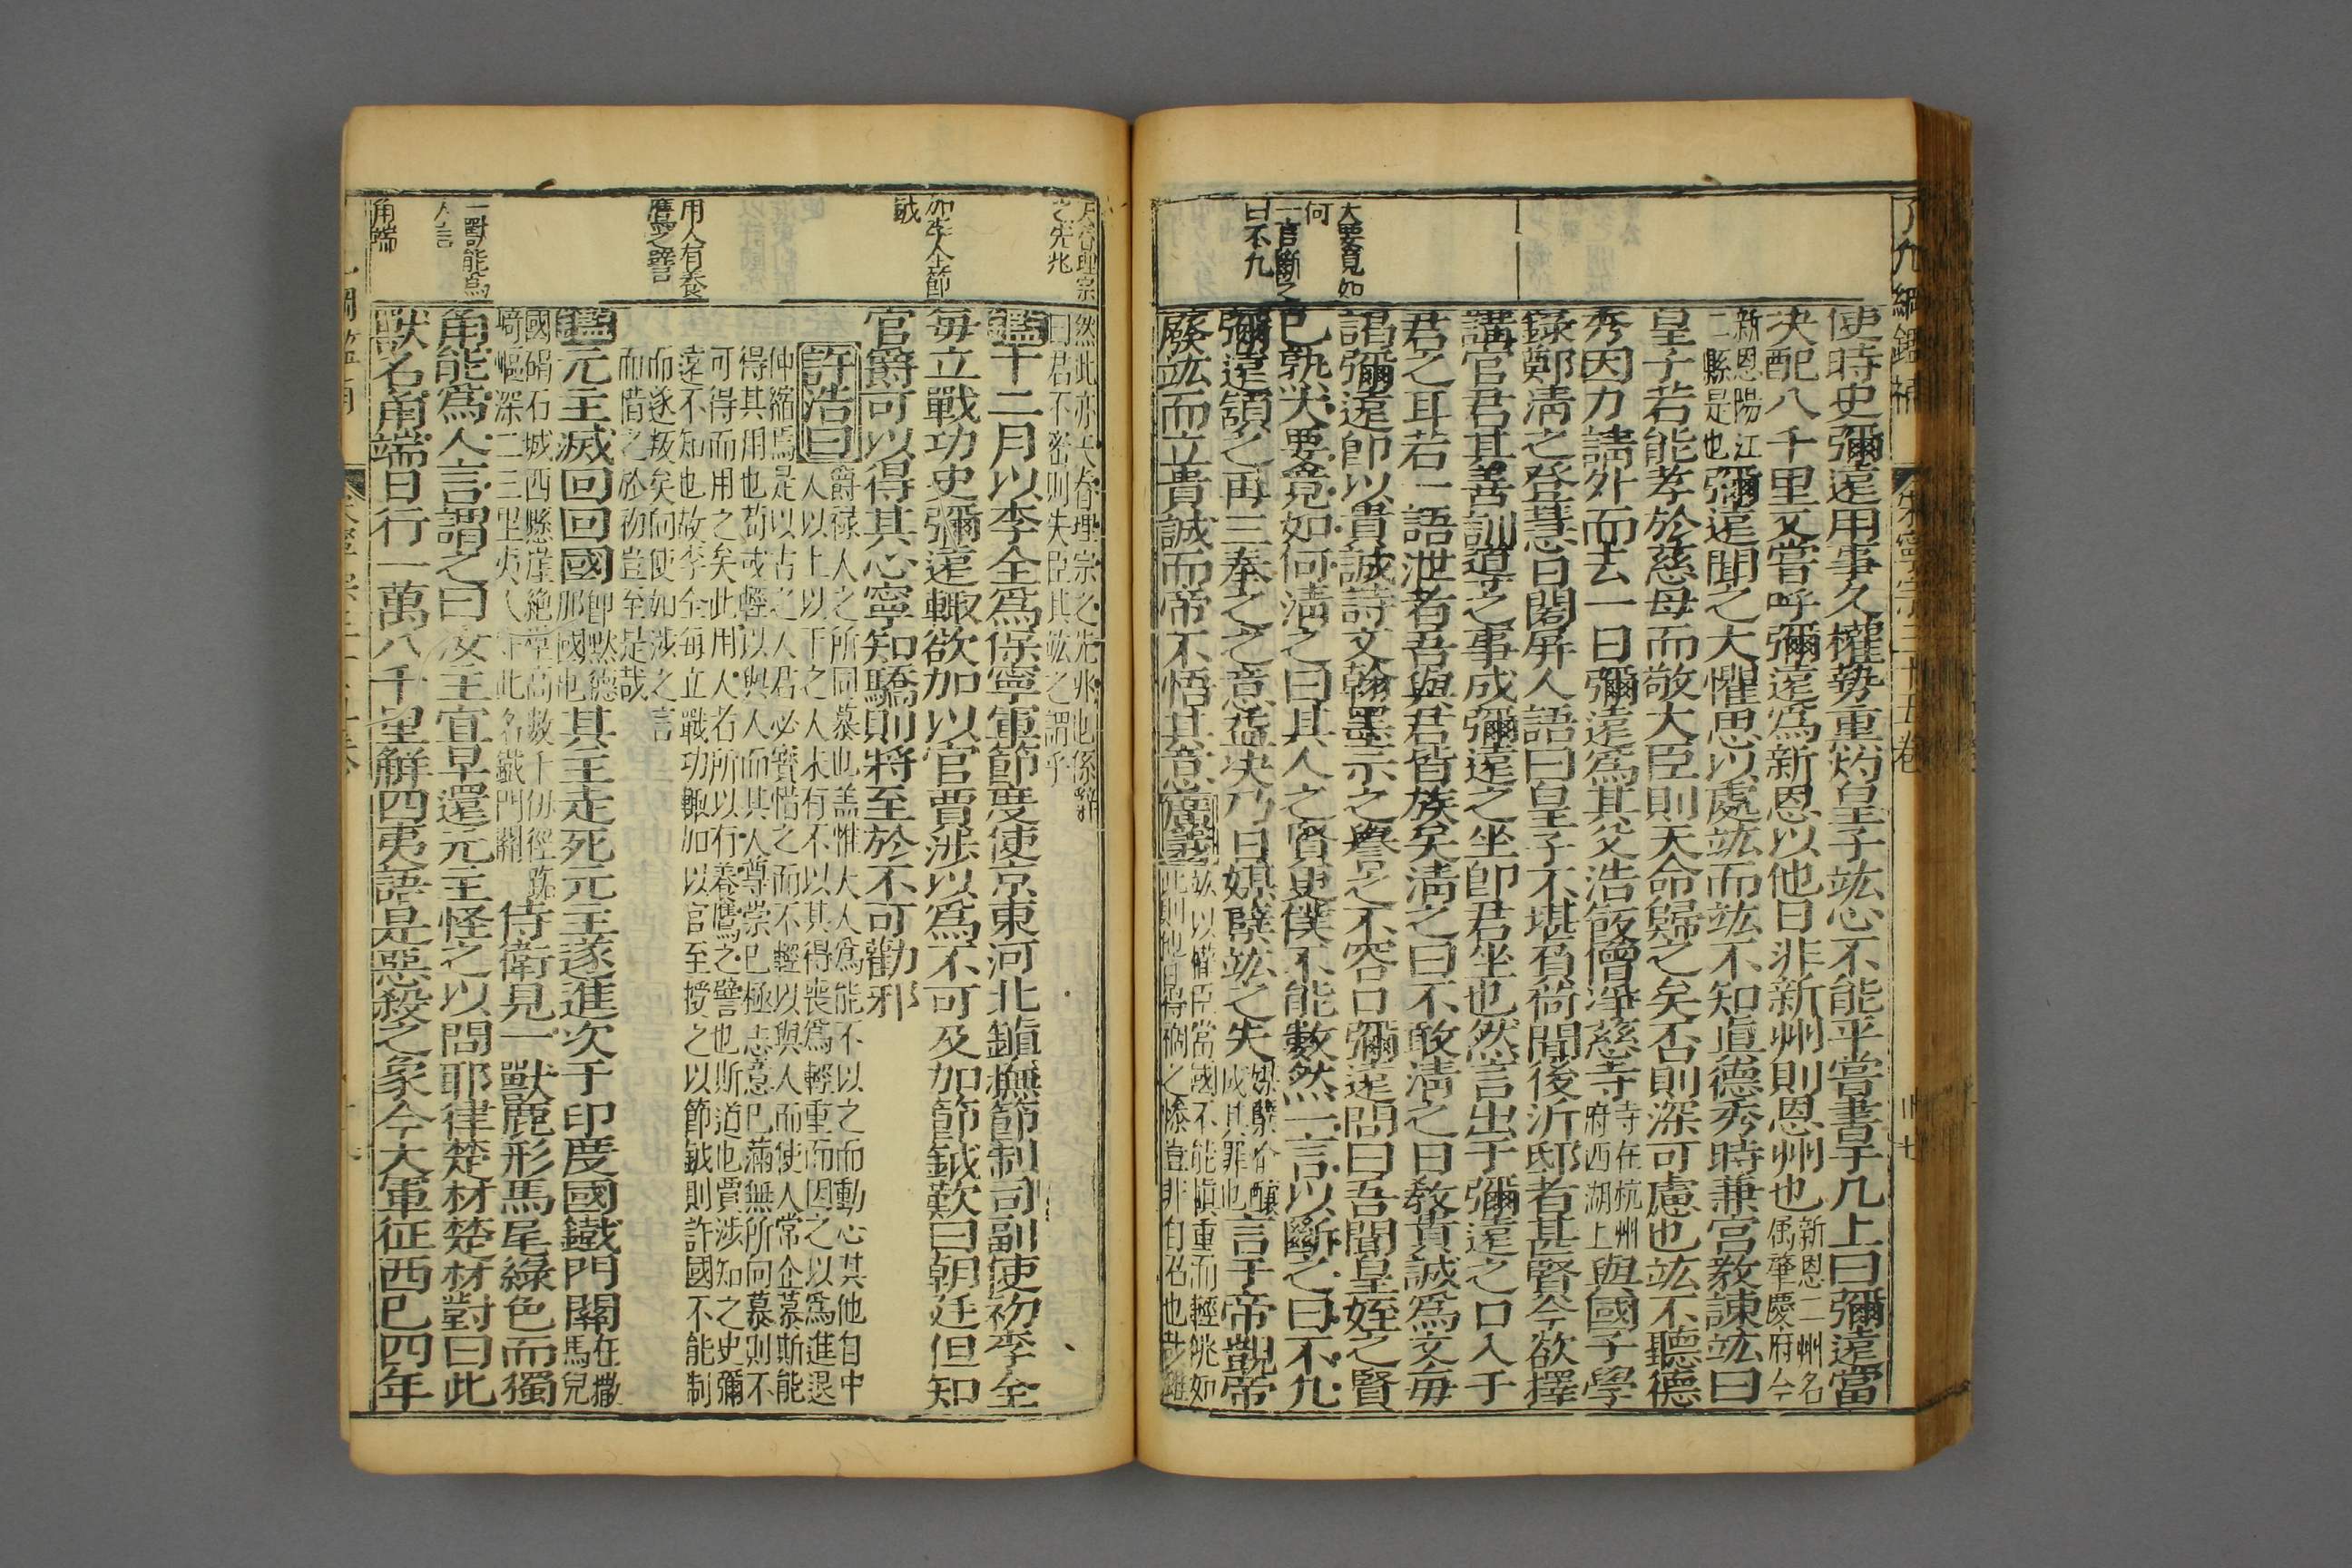 了凡綱鑑補
宋寧宗三十五卷
使時史彌遠用事久權勢重灼皇子竑心不能平嘗書字几上曰彌遠當
決配八千里又嘗呼彌遠為新恩以他日非新州則恩州也
新恩二州名
屬肇慶府今
新恩陽江
二縣是也
彌遠聞之大懼思以處竑而竑不知真德秀時兼宮教諫竑曰
皇子若能孝於慈母而敬大臣則天命歸之矣否則深可慮也竑不聽德
秀因力請外而去一日彌遠為其父浩飯僧淨慈寺
寺在杭州
府西湖上
與國子學
錄鄭清之登慧日閣屏人語曰皇子不堪負荷聞後沂邸者甚賢今欲擇
講官君其善訓導之事成彌遠之坐即君坐也然言出于彌遠之口入于
君之耳若一語泄者吾與君皆族矣清之曰不敢清之日教貴誠為文每
謁彌遠即以貴誠詩文翰墨示之譽之不容口彌遠問曰吾聞皇姪之賢
已熟大要竟如何清之曰其人之賢更僕不能數然一言以斷之曰不凡
彌遠頷之再三奉之之意益決乃日媒孽竑之失
媒孽醖釀
成其罪也
言于帝覬帝
廢竑而立貴誠而帝不悟其意
廣義
竑以權臣當國不能慎重而輕眺如
大要竟如
何
一言斷之
曰不凡
然此亦大春理宗之先兆也係辭
曰君不密則失臣其竑之謂乎
鑑十二月以李全為保寧軍節度使京東河北鎮撫節制司副使初李全
每立戰功史彌遠輒欲加以官賈涉以為不可及加節鉞歎曰朝廷但知
官爵可以得其心寧知驕則將至於不可勸邪
許浩曰
爵祿人之所同慕也盖惟大人為能不以之而動心其他自中
人以上以下之人未有不以其得喪為輕重而因之以為進退
仲縮焉是以古之人君必寶惜之而不輕以與人而使人常企慕斯能
得其用也苟或輕以與人而其人尊崇已極志意已滿無所向慕則不
可得而用之矣此用人者所以有養鷹之譬也斯道也賈涉知之史彌
遠不知也故李全每立戰功輒加以官至授之以節鉞則許國不能制
而遂叛矣向使如涉之言
而惜之於初豈至是哉
鑑元主滅回回國
即默德
那國也
其主走死元主遂進次于印度國鐵門關
在撒
馬兒
國碣石城西懸崖絕壁高數十仞徑路
崎嶇深二三里夷人守此名鐵門關
侍衛見一獸鹿形馬尾綠色而獨
角能為人言謂之曰汝主宜早還元主怪之以問耶律楚材楚材對曰此
獸名角端日行一萬八千里觧四夷語是惡殺之象今大軍征西已四年
之先兆
用人有養
鷹之譬
一獸能為
人言
角端